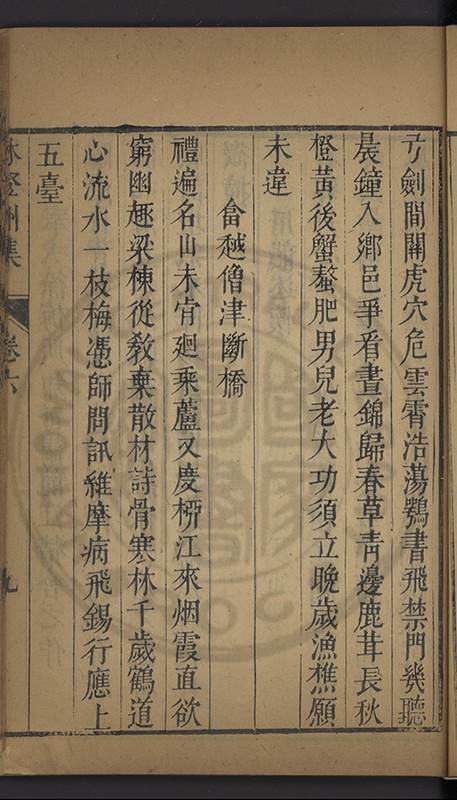 弓劍間關虎穴危雲霄浩蕩鶚書飛禁門幾聽
晨鐘入鄉邑爭看晝錦歸春草青邊鹿茸長秋
橙黃後蟹螯肥男兒老大功須立晚歲漁樵願
未違
會越僧津斷橋
禮遍名山未肯廻乘蘆又度浙江來烟霞直欲
窮幽趣梁棟從教棄散材詩骨寒林千歲鶴道
心流水一枝梅憑師問訊維摩病飛錫行應上
五臺
林登州集
卷六
九